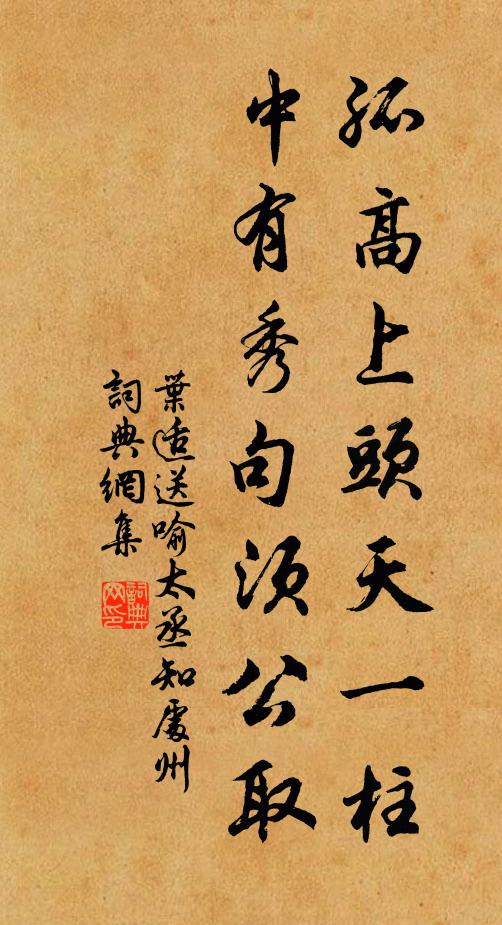 孤高上頭天一柱
中有秀句須公取
葉適送喻太丞知處州
詞典網集
詞典網印